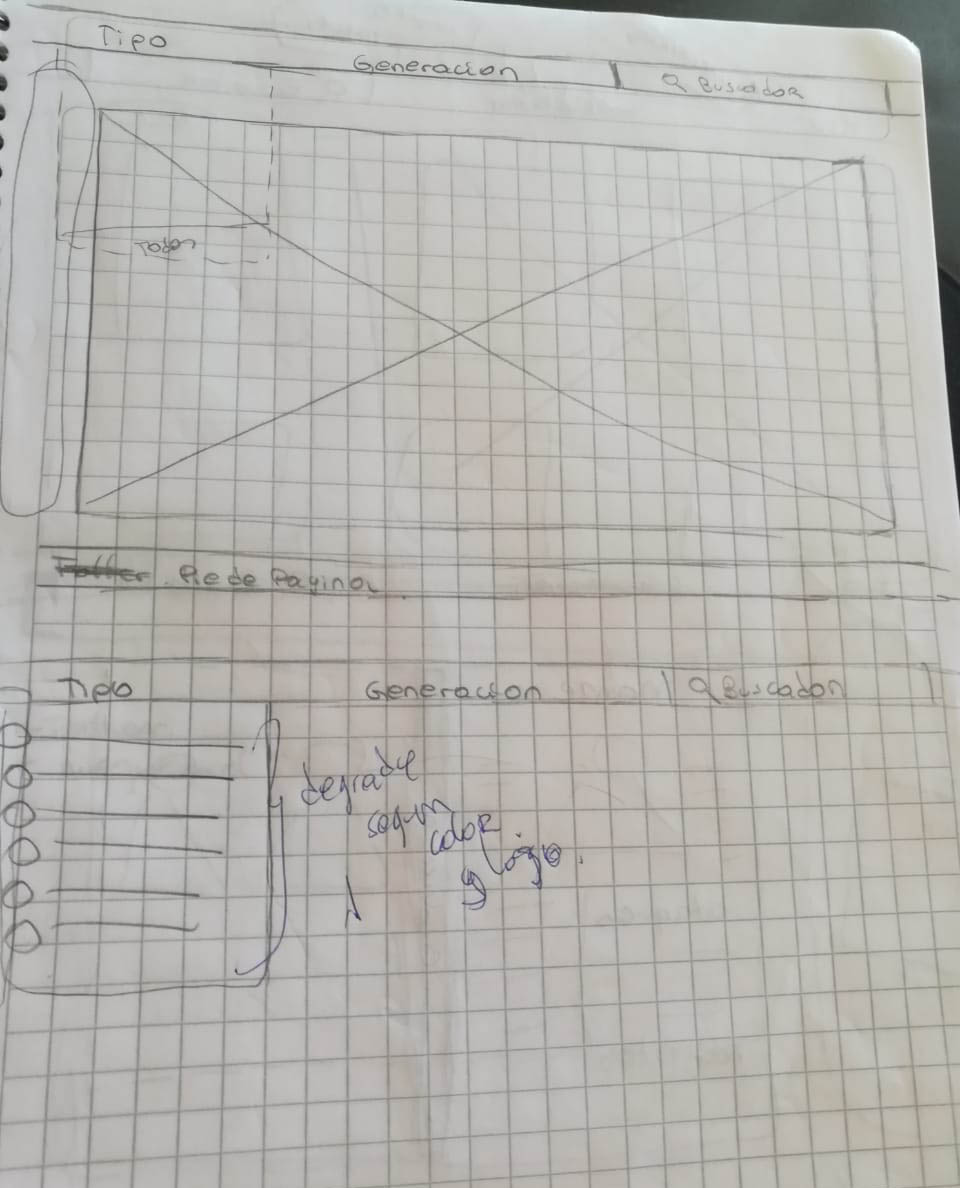 Tipo
Generacion
Buscador
Footer. Pie de Pagina
Tipo
Generacion
Buscador
degrade
segun
color
y logo.